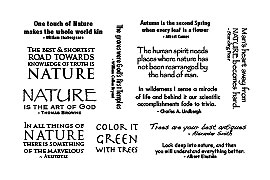 One touch of Nature
makes the whole world kin
~ William Shakespeare
THE BEST & SHORTEST
ROAD TOWARDS
KNOWLEDGE OF TRUTH IS
NATURE
NATURE
IS THE ART OF GOD
~ THOMAS BROWNE
IN ALL THINGS OF
NATURE
THERE IS SOMETHING
OF THE MARVELOUS
~ ARISTOTLE
The groves were God's first temples
~ William Cullen Bryant
COLOR IT
GREEN
WITH TREES
Autumn is the second Spring
when every leaf is a flower
~ Albert Camus
The human spirit needs
places where nature has
not been rearranged by
the hand of man.
In wilderness I sense a miracle
of life and behind it our scientific
accomplishments fade to trivia.
~ Charles A. Lindbergh
Man's heart away from
NATURE becomes hard.
Trees are your best antiques
~ Alexander Smith
Look deep into nature, and then
you will understand everything better.
~ Albert Einstein